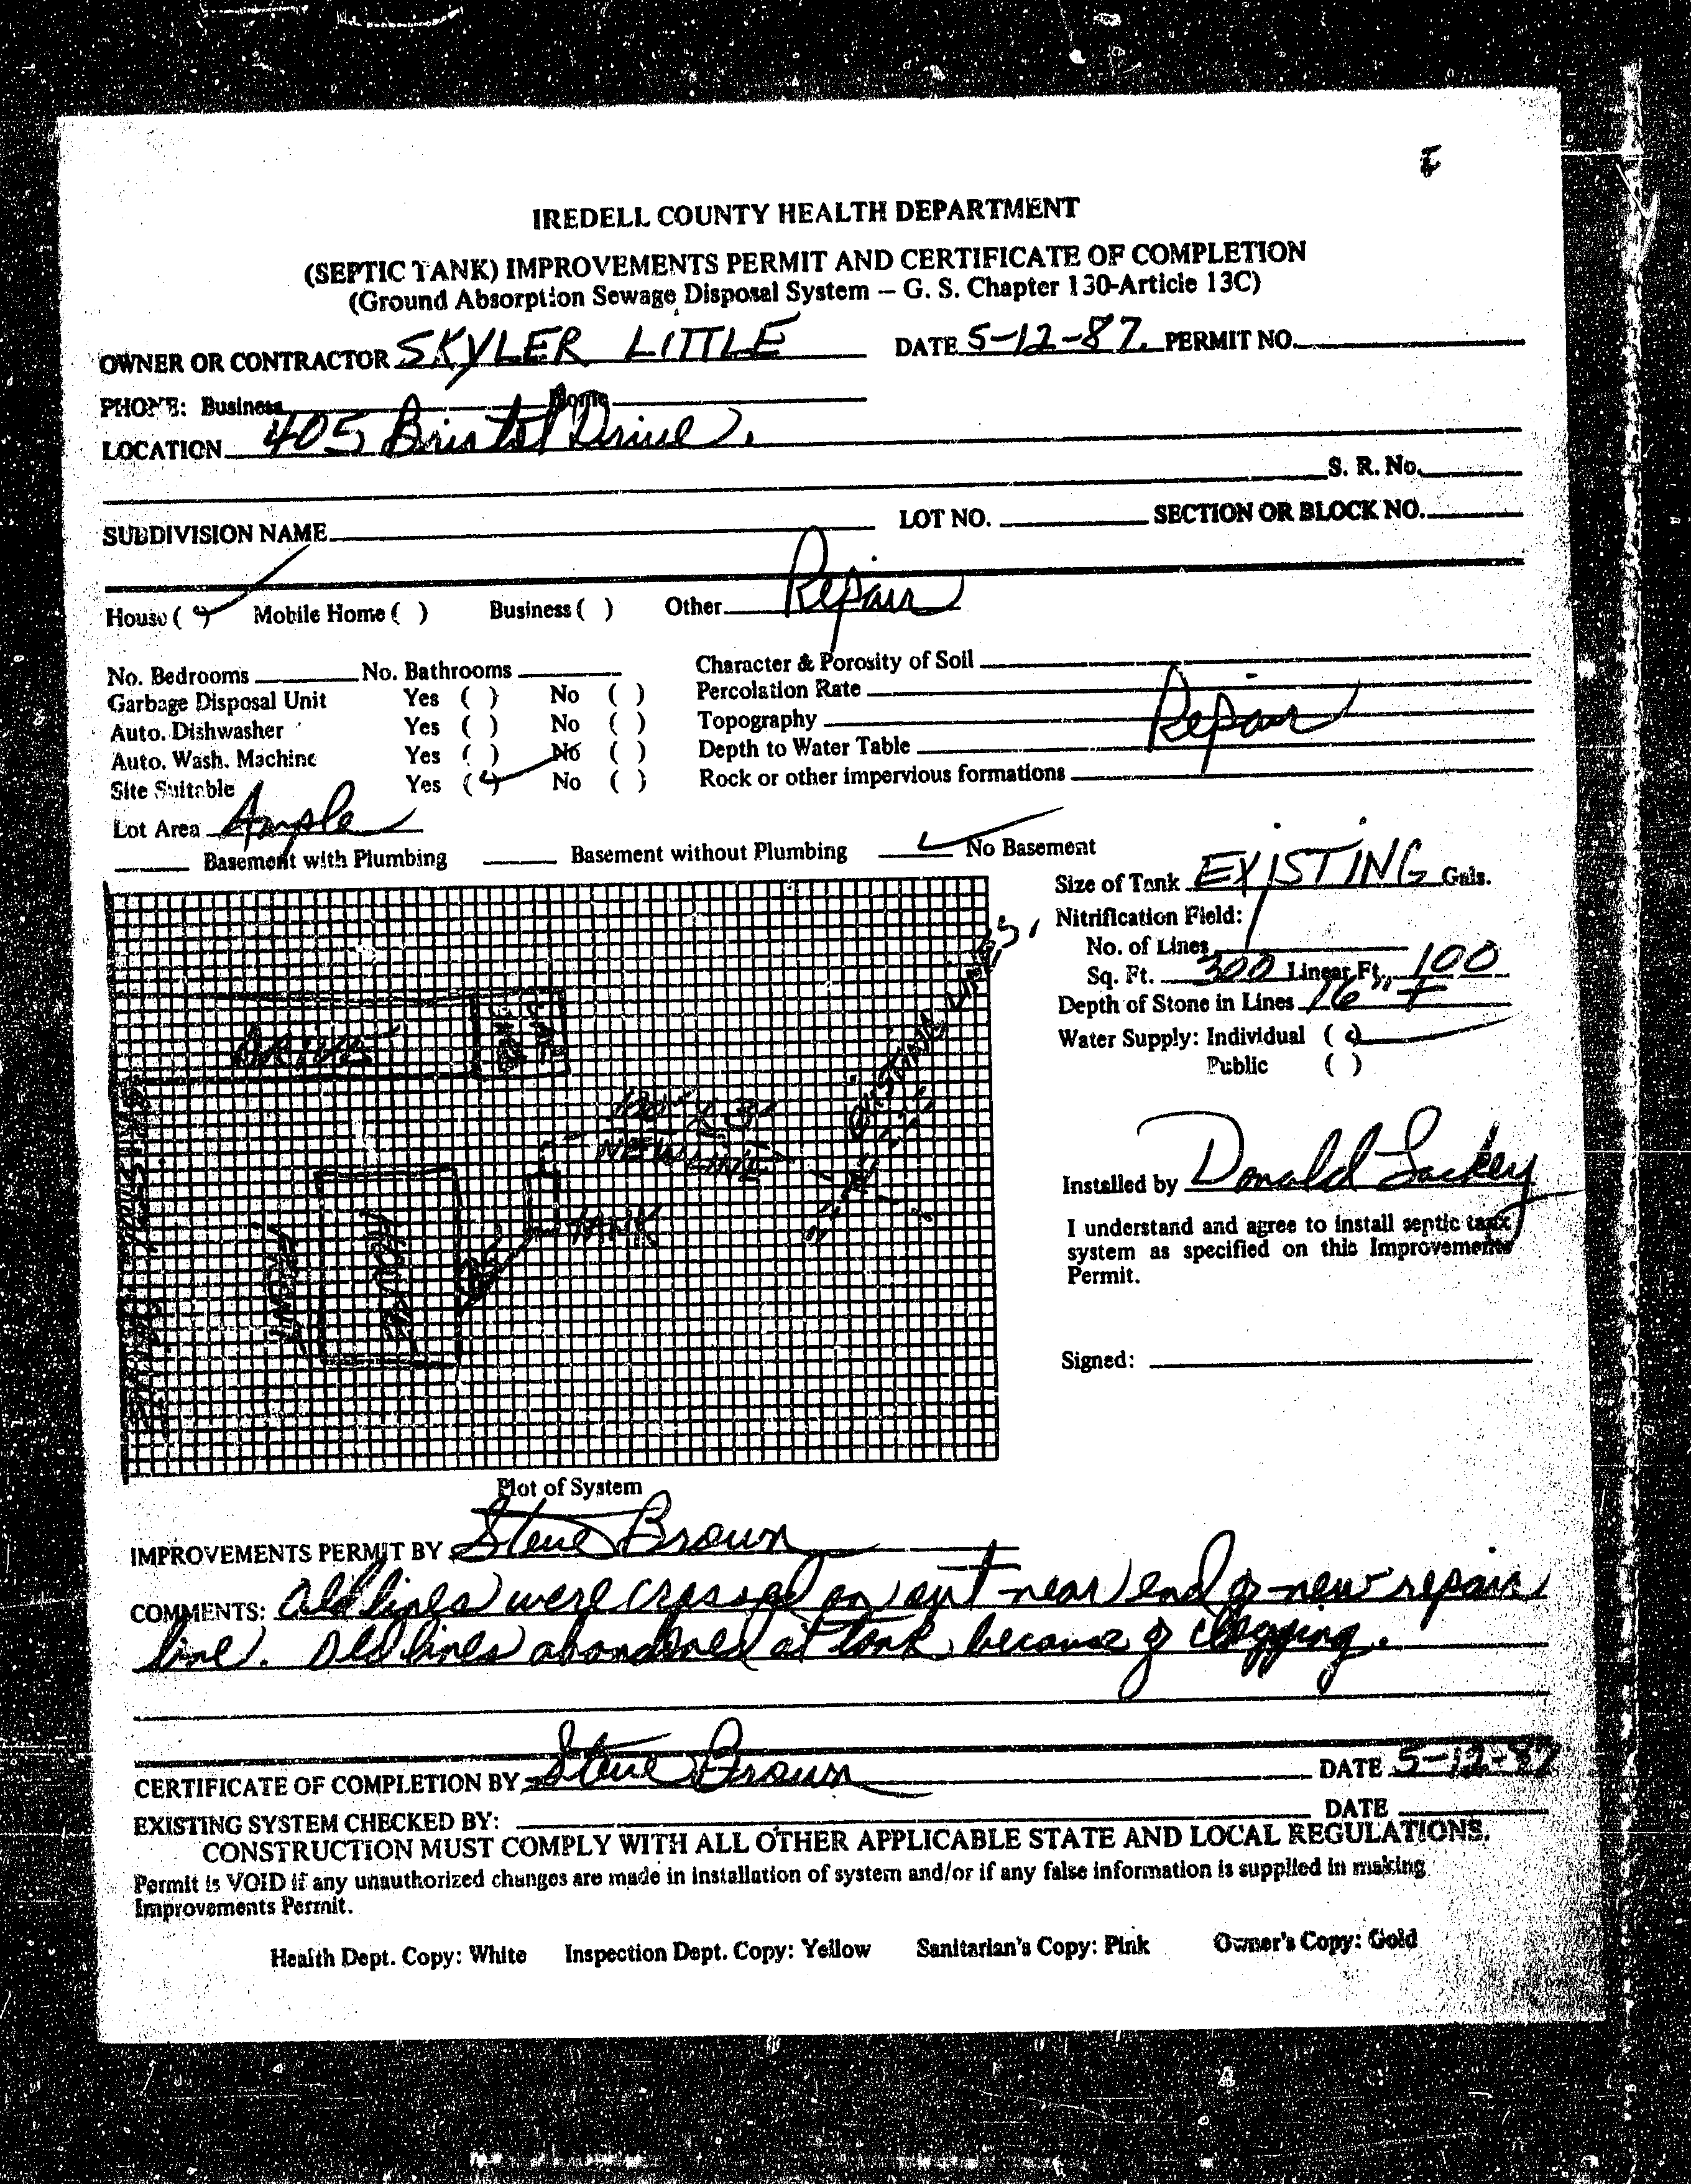 IREDELL COUNTY HEALTH DEPARTMENT
(SEPTIC TANK) IMPROVEMENTS PERMIT AND CERTIFICATE OF COMPLETION
(Ground Absorption Sewage Disposal System – G. S. Chapter 130-Article 13C)
OWNER OR CONTRACTOR SKYLER LITTLE DATE 5-12-87. PERMIT NO.
PHONE: Business Home
LOCATION 405 Bristol Drive.
S. R. No.
SUBDIVISION NAME LOT NO. SECTION OR BLOCK NO.
House ( ✓ ) Mobile Home ( ) Business ( ) Other Repair
No. Bedrooms No. Bathrooms Character & Porosity of Soil
Garbage Disposal Unit Yes ( ) No ( ) Percolation Rate
Auto. Dishwasher Yes ( ) No ( ) Topography Repair
Auto. Wash. Machine Yes ( ) No ( ) Depth to Water Table
Site Suitable Yes (✓) No ( ) Rock or other impervious formations
Lot Area Ample
Basement with Plumbing Basement without Plumbing ✓ No Basement
Size of Tank EXISTING Gals.
Nitrification Field:
No. of Lines 1
Sq. Ft. 300 Linear Ft. 100
Depth of Stone in Lines 16" +
Water Supply: Individual (✓)
Public ( )
DRIVE
EXISTING LINES
100' X 3'
NEW LINE
TANK
HOUSE
FRONT
Installed by Donald Lackey
I understand and agree to install septic tank
system as specified on this Improvements
Permit.
Signed:
Plot of System
IMPROVEMENTS PERMIT BY Steve Brown
COMMENTS: Old lines were crossed on out near end of new repair
line. Old lines abandoned at tank because of clogging.
CERTIFICATE OF COMPLETION BY Steve Brown DATE 5-12-87
EXISTING SYSTEM CHECKED BY: DATE
CONSTRUCTION MUST COMPLY WITH ALL OTHER APPLICABLE STATE AND LOCAL REGULATIONS.
Permit is VOID if any unauthorized changes are made in installation of system and/or if any false information is supplied in making
Improvements Permit.
Health Dept. Copy: White Inspection Dept. Copy: Yellow Sanitarian's Copy: Pink Owner's Copy: Gold